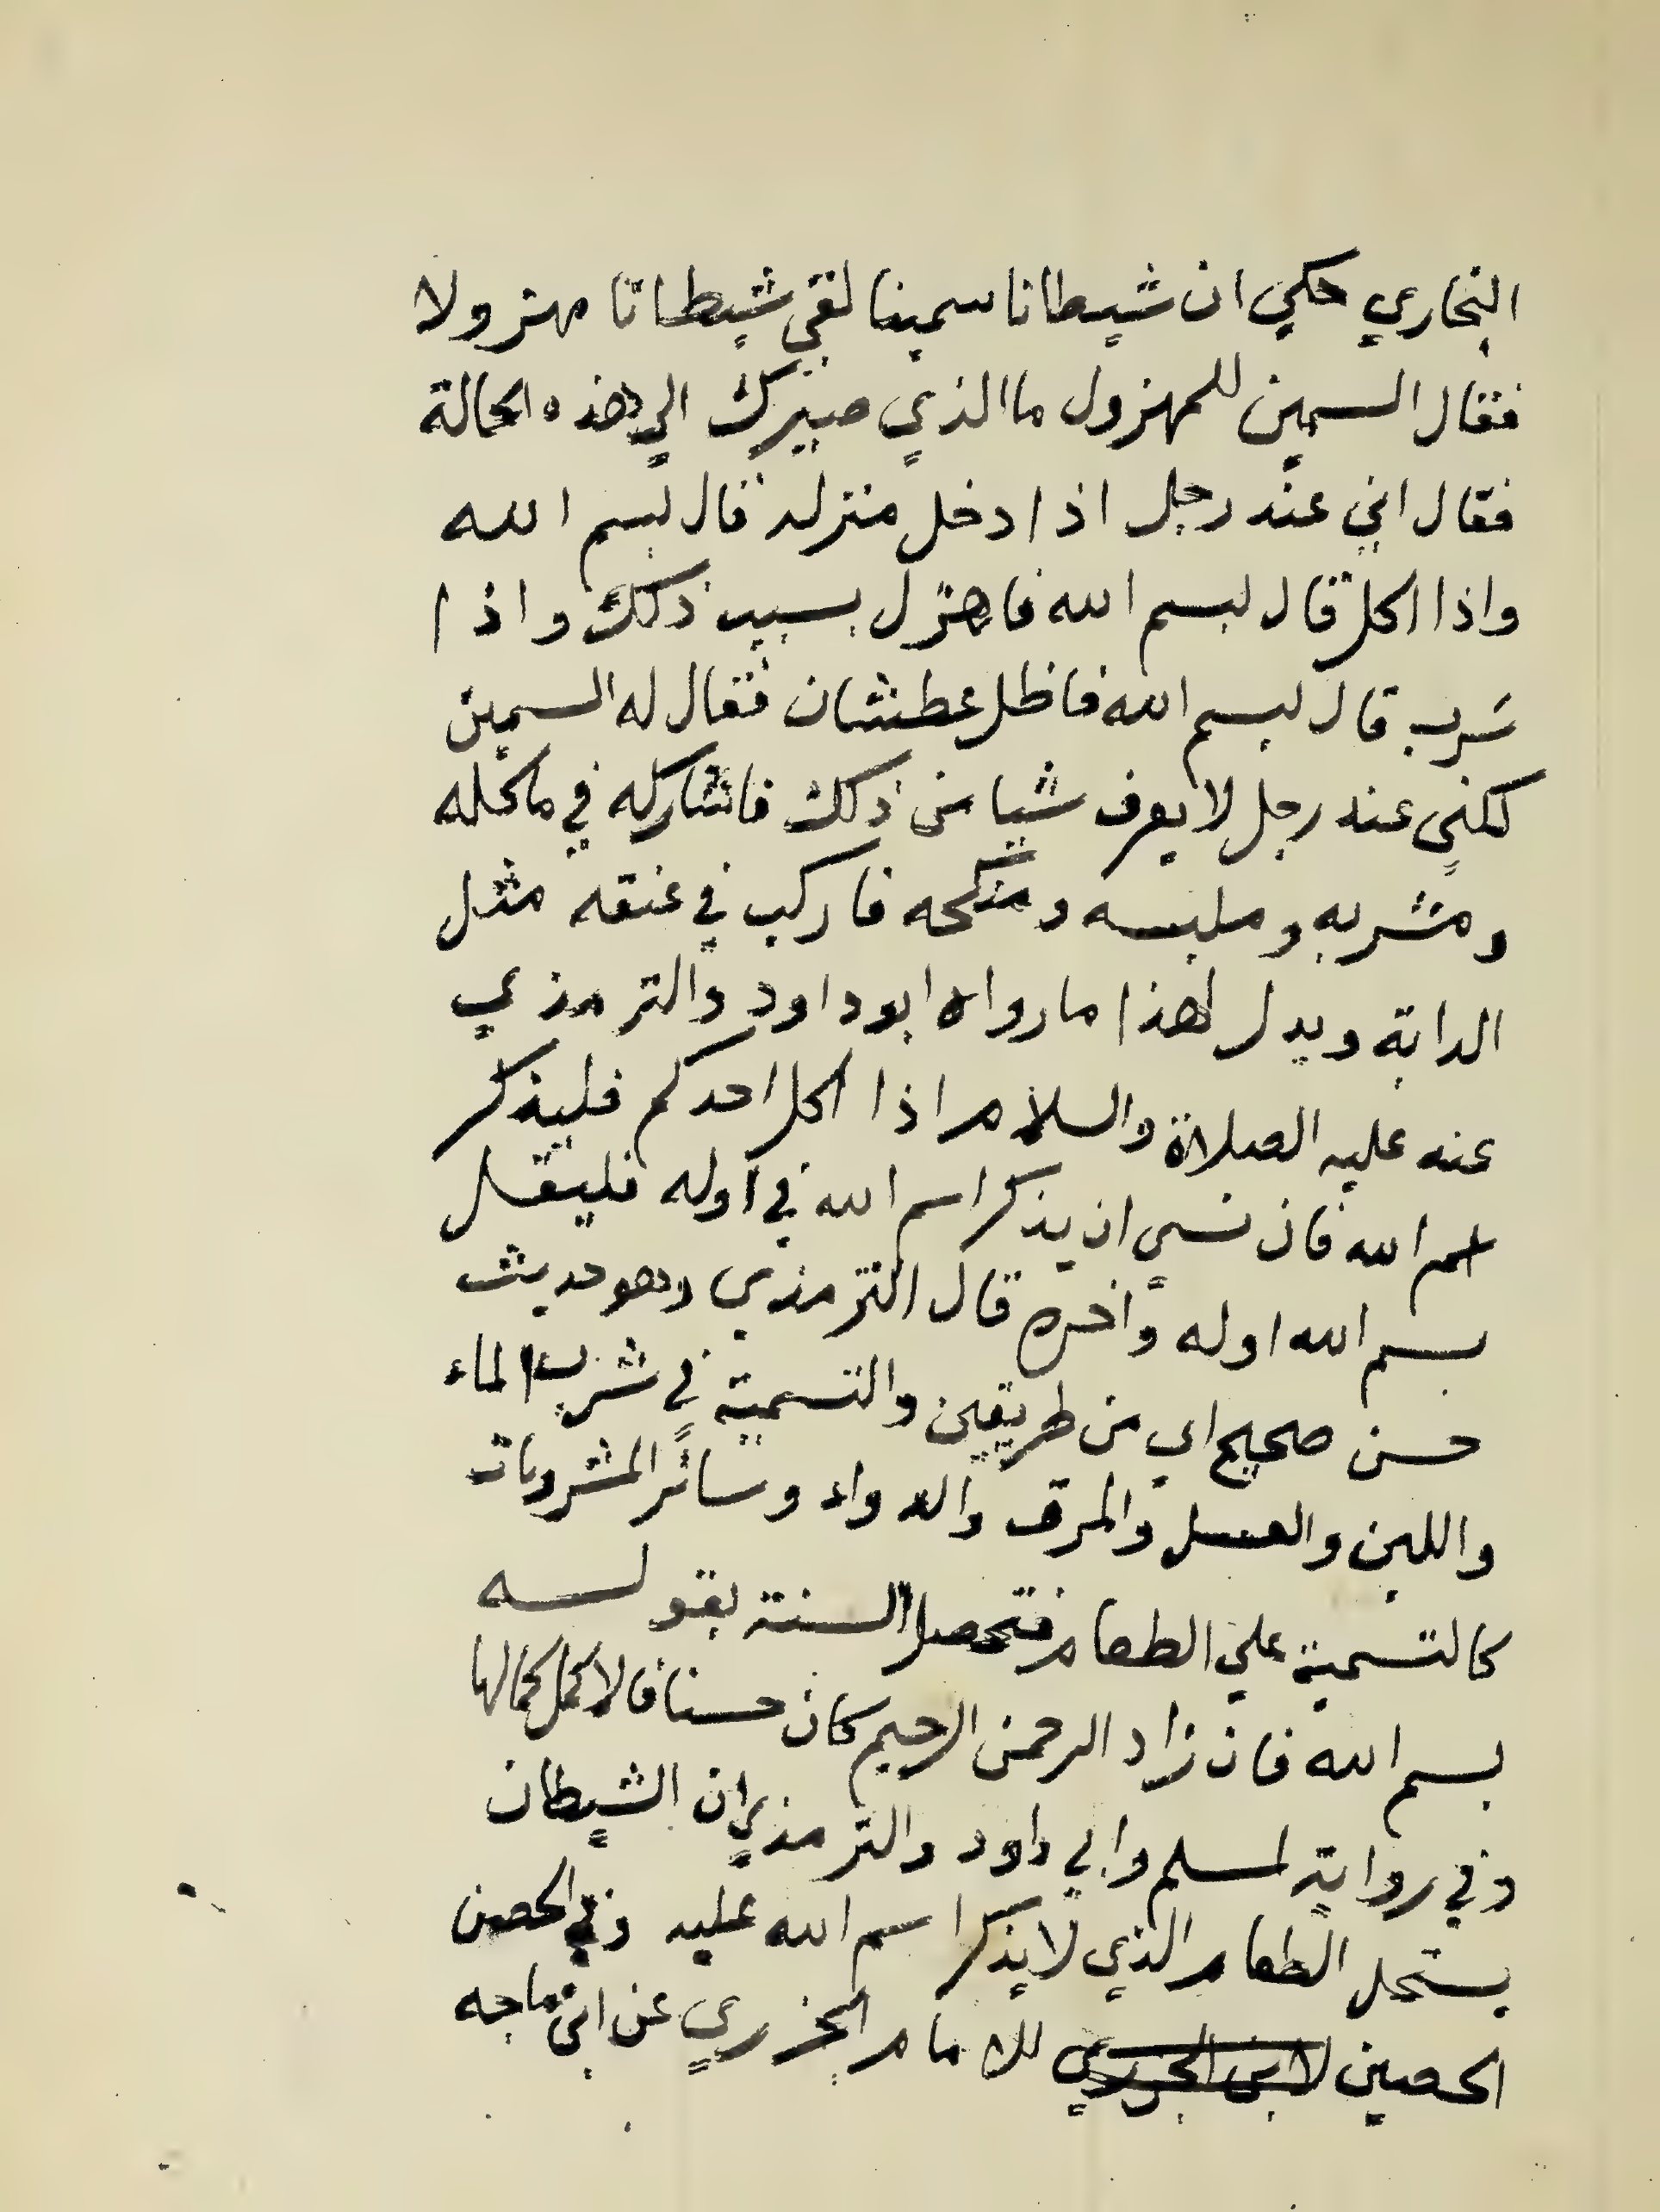 البخاري حكي ان شيطانا سمينا لقي شيطانا مهزولا
فقال السمين للمهزول ما الذي صيرك الي هذه الحالة
فقال اني عند رجل اذا دخل منزله قال بسم الله
واذا اكل قال بسم الله فاهزل بسبب ذلك واذا
شرب قال بسم الله فاظل عطشان فقال له السمين
لكني عند رجل لا يعرف شيا من ذلك فاشاركه في ماكله
ومشربه وملبسه ومنكحه فاركب في عنقه مثل
الدابة ويدل لهذا ما رواه ابو داود والترمذي
عنه عليه الصلاة والسلام اذا اكل احدكم فليذكر
اسم الله فان نسي ان يذكر اسم الله في اوله فليقل
بسم الله اوله واخره قال الترمذي وهو حديث
حسن صحيح اي من طريقين والتسمية في شرب الماء
واللبن والعسل والمرق والدواء وسائر المشروبات
كالتسمية علي الطعام فتحصل السنة بقوله
بسم الله فان زاد الرحمن الرحيم كان حسنا فالاكمل كمالها
وفي رواية لمسلم وابي داود والترمذي ان الشيطان
يستحل الطعام الذي لا يذكر اسم الله عليه وفي الحصن
الحصين لابن الجزري للامام الجزري عن ابن ماجه